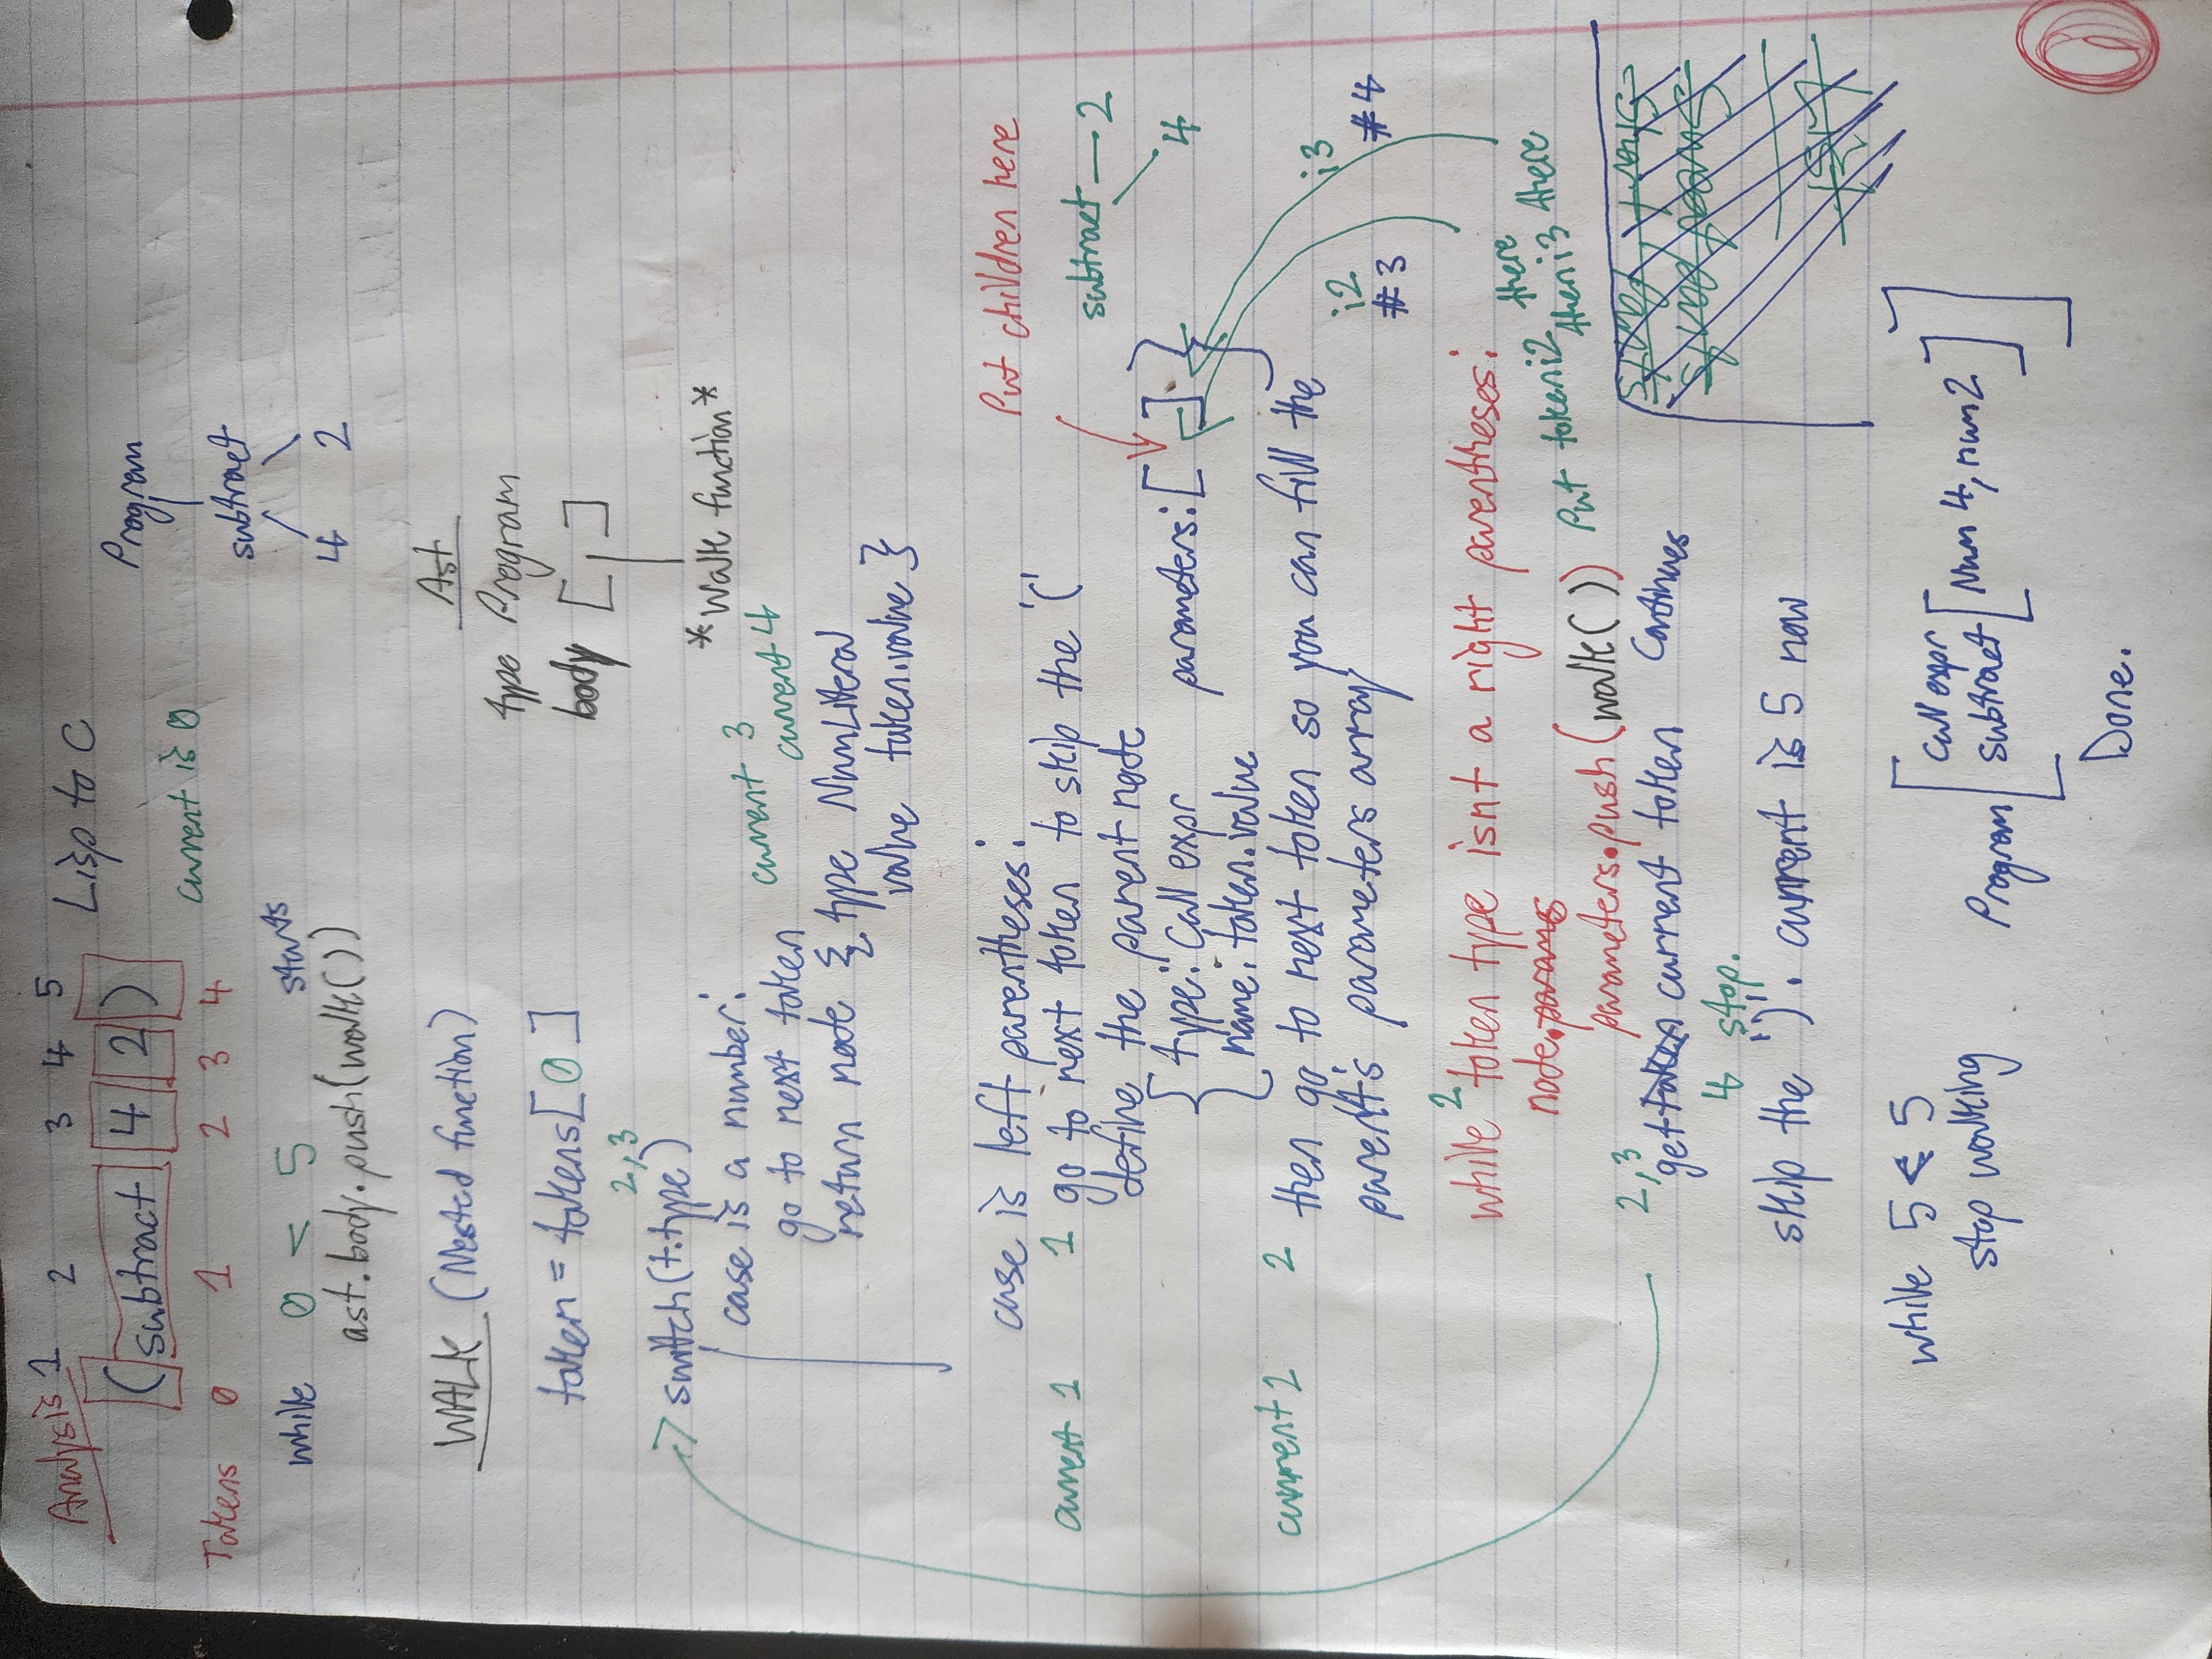 Analysis 1 2 3 4 5 Lisp to C
( subtract 4 2 )
Tokens 0 1 2 3 4 current is 0
Program
subtract
4 2
while 0 < 5 starts
ast.body.push(walk())
Ast
type Program
body [ ]
*Walk function*
WALK (Nested function)
token = tokens[0]
2,3
switch(t.type)
case is a number: current 3
go to next token current 4
return node { type NumLiteral
value token.value }
case is left parentheses:
current 1 1 go to next token to skip the '('
define the parent node
Put children here
{ type: Call expr parameters: [ ] }
name: token.value
subtract — 2
4
current 2 2 then go to next token so you can fill the
parent's parameters array
i2 i3
#3 #4
while 2 token type isnt a right parentheses:
node.params
parameters.push(walk()) Put token i2 there
then i3 there
2,3 get token current token Continues
4 stop.
skip the ')'. current is 5 now
while 5 < 5
stop walking
Program [ Call expr
subtract [ Num 4, num 2 ] ]
Done.